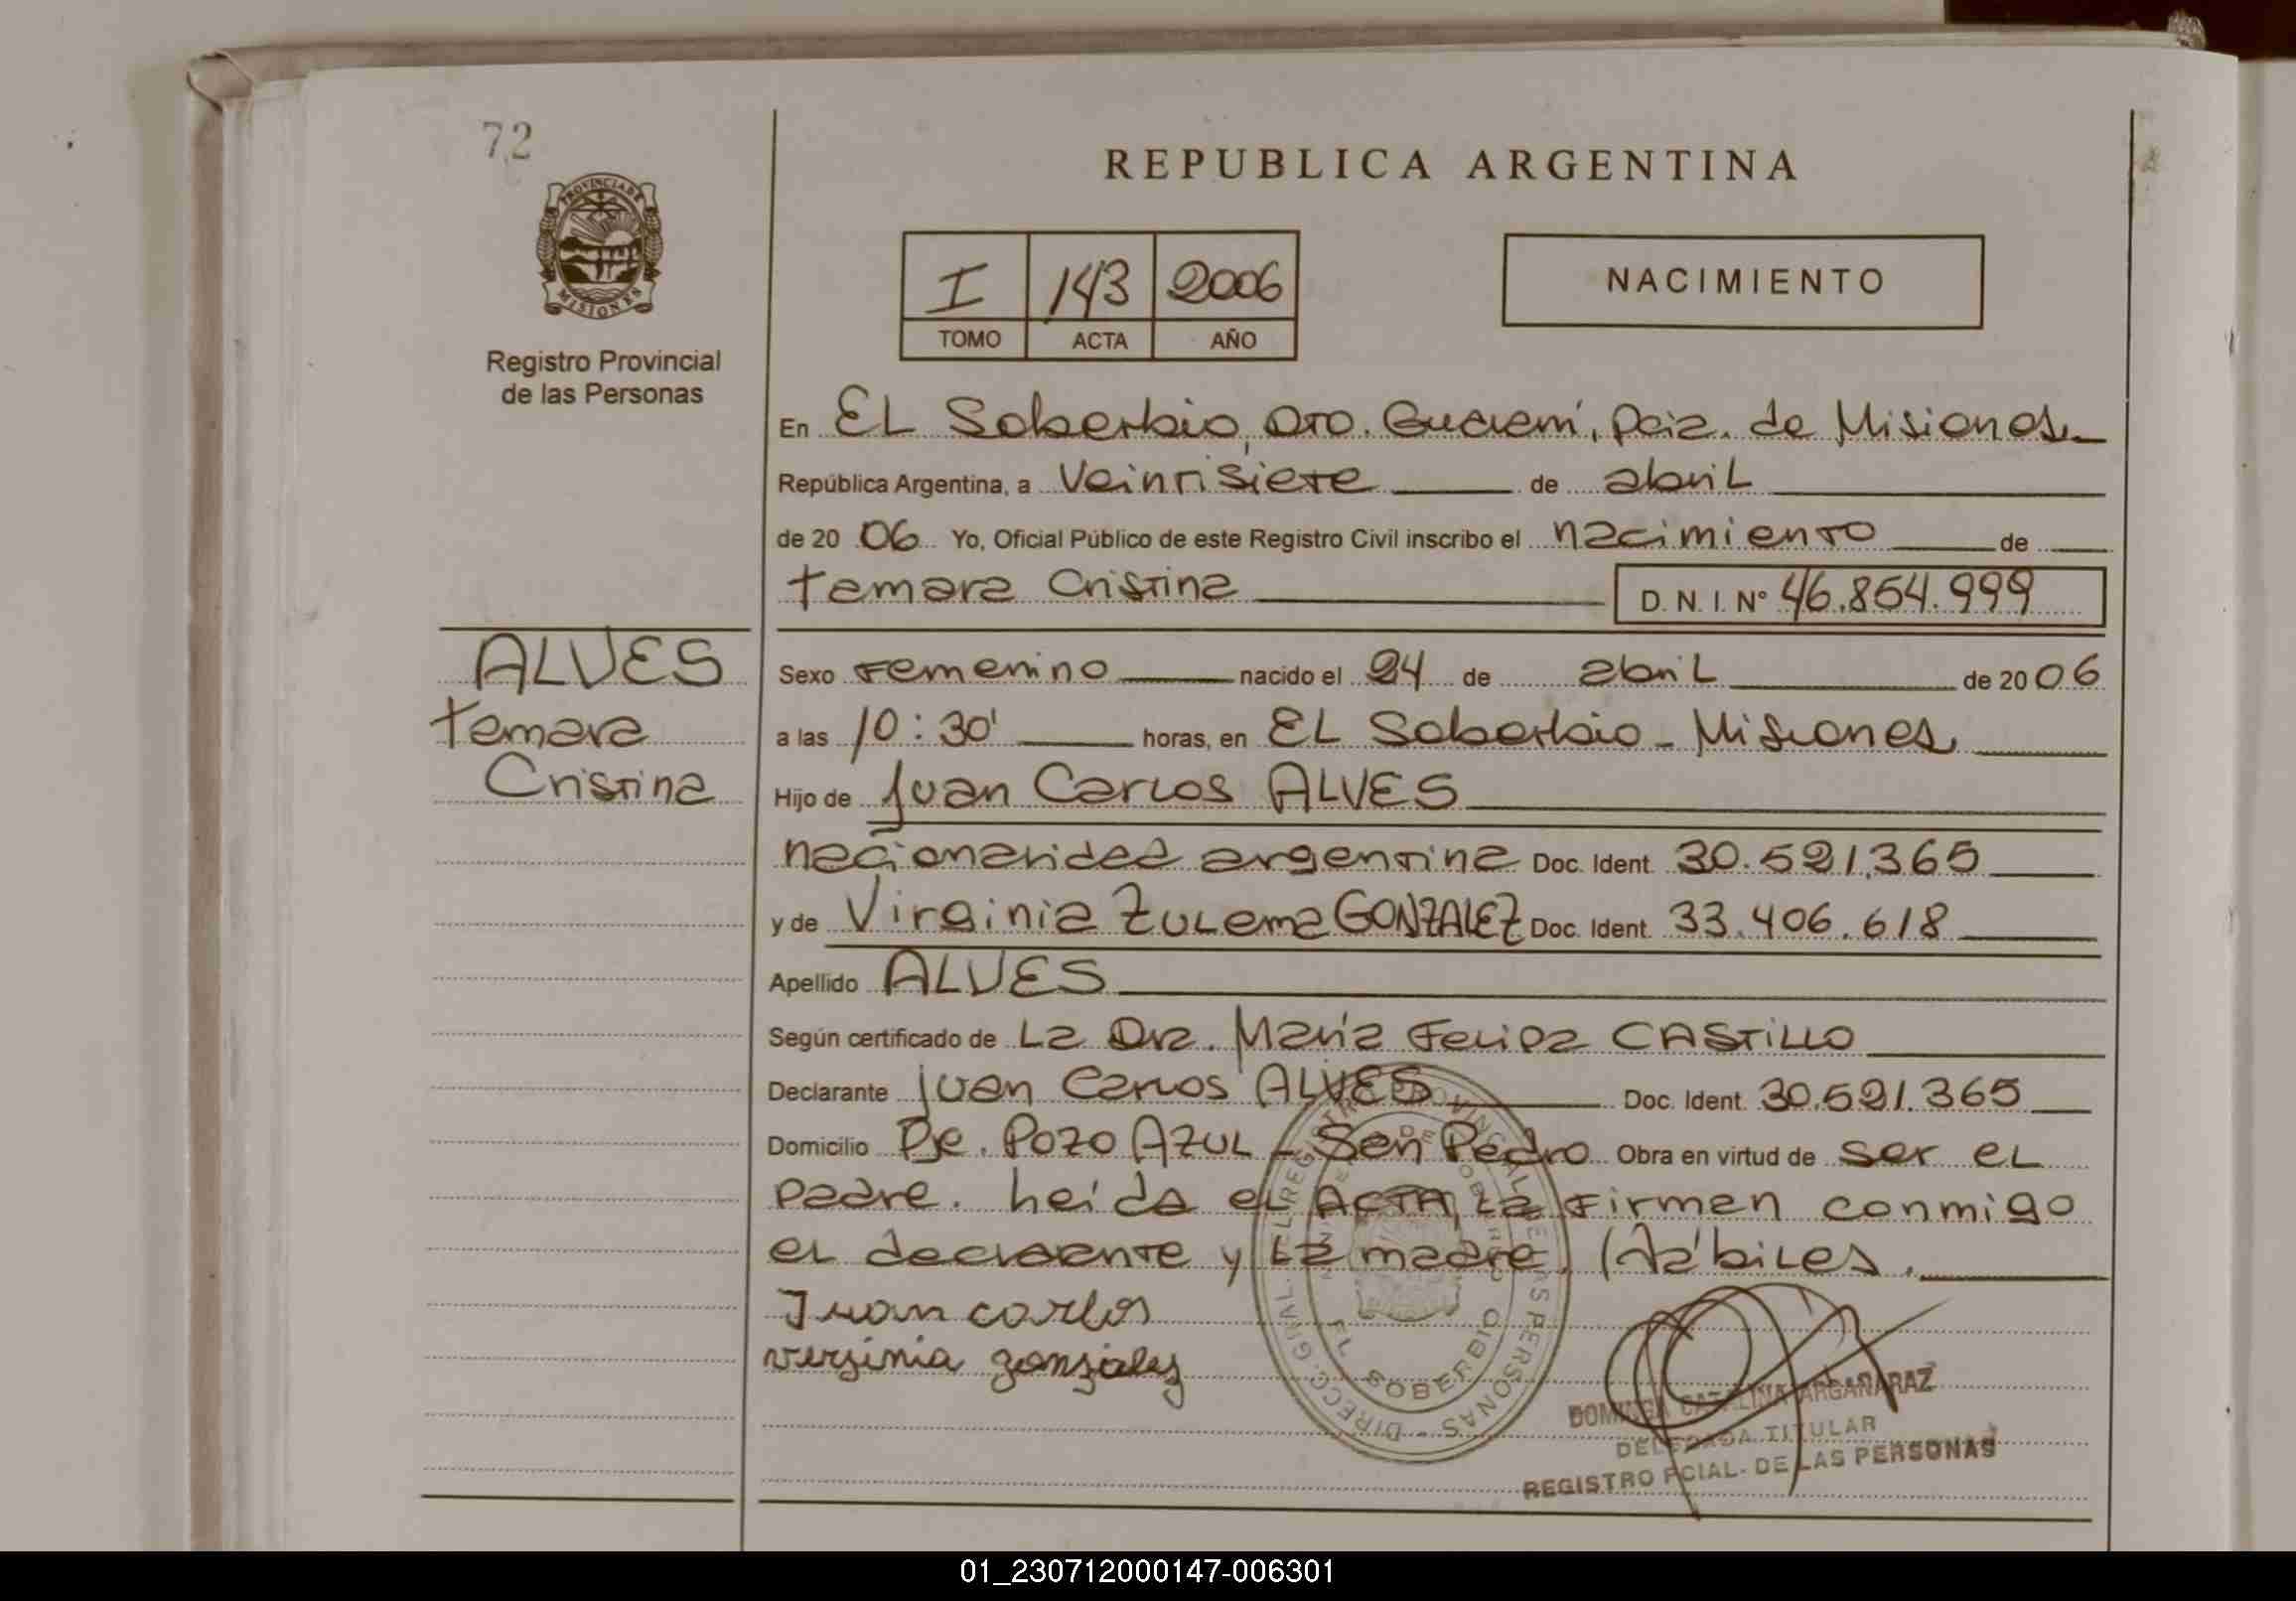 72
PROVINCIA DE
MISIONES
Registro Provincial
de las Personas
REPUBLICA ARGENTINA
I 143 2006
TOMO ACTA AÑO
NACIMIENTO
En EL Soberbio, Dto. Guaraní, Pcia. de Misiones
República Argentina, a veintisiete de abril
de 20 06 Yo, Oficial Público de este Registro Civil inscribo el nacimiento de
Tamara Cristina D. N. I. N° 46.854.999
ALVES
Tamara
Cristina
Sexo Femenino nacido el 24 de abril de 20 06
a las 10:30' horas, en EL Soberbio - Misiones
Hijo de Juan Carlos ALVES
nacionalidad argentina Doc. Ident. 30.521.365
y de Virginia Zulema GONZALEZ Doc. Ident. 33.406.618
Apellido ALVES
Según certificado de La Dra. María Felipa CASTILLO
Declarante Juan Carlos ALVES Doc. Ident. 30.521.365
Domicilio Pje. Pozo AZUL - San Pedro Obra en virtud de ser el
padre. Leída el ACTA, La Firman conmigo
el declarante y La madre. Hábiles.
Juan carlos
verginia gonzalez
DIRECC. GRAL. DEL REGISTRO PROVINCIAL DE LAS PERSONAS
EL SOBERBIO
DOMINGA CATALINA ARGAÑARAZ
DELEGADA TITULAR
REGISTRO PCIAL. DE LAS PERSONAS
01_230712000147-006301